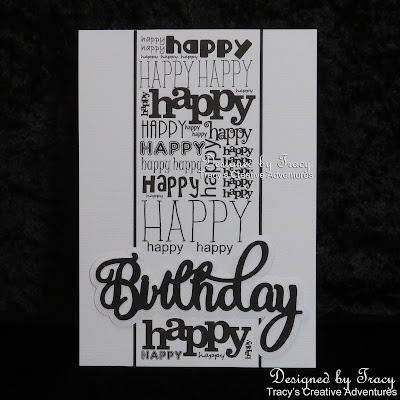 happy happy
happy happy
happy happy happy
HAPPY HAPPY
happy happy
HAPPY happy happy happy
HAPPY happy
happy happy happy
Happy
HAPPY
happy happy
Birthday
happy
HAPPY happy happy
Designed by Tracy
Tracy's Creative Adventures
Designed by Tracy
Tracy's Creative Adventures